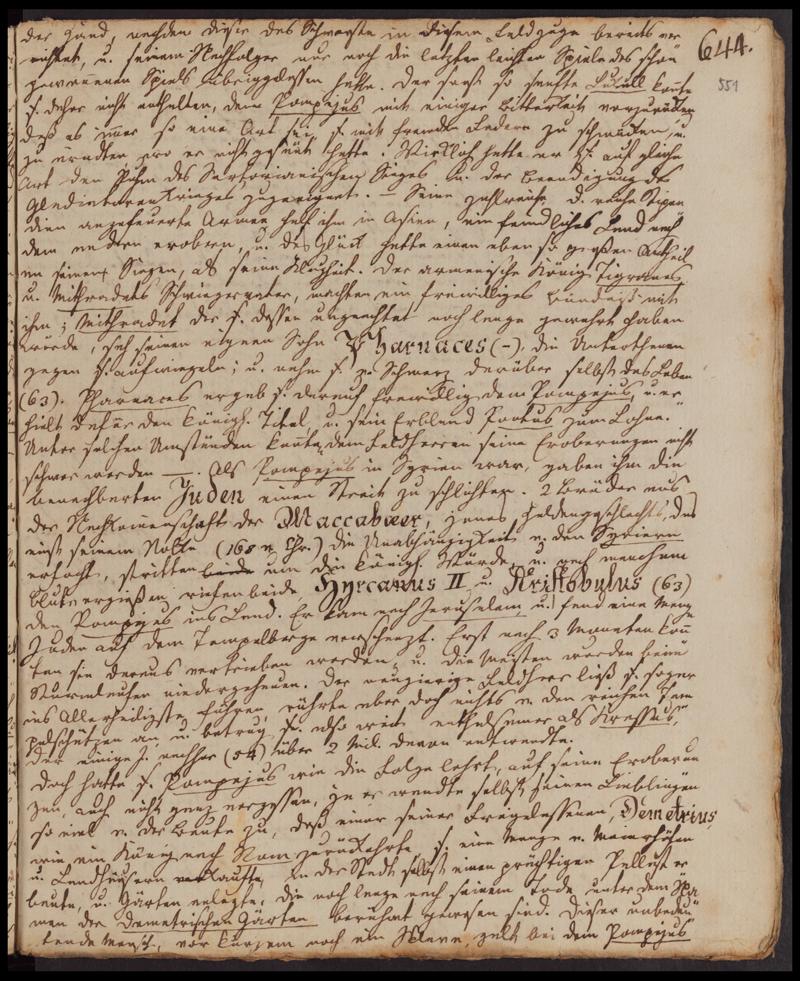 644.
551
der Hand, nachdem dieser das Schwerste in diesem Feldzuge bereits ver
richtet, u. seinem Nachfolger nur noch die letzten leichten Spiele des schon
gewonnenen Spiels übriggelassen hatte. Der sonst so sanfte Lucull konnte
s. daher nicht enthalten, dem Pompejus mit einiger Bitterkeit vorzurücken
daß es immer so eine Art sei, s. mit fremden Federn zu schmücken, u.
zu ärndten wo er nicht gesäet hatte. Wirklich hatte er s. auf gleiche
Art den Ruhm des Sertorianischen Sieges u. der Beendigung des
Gladiatoren Krieges zugeeignet. — Seine zahlreiche, d. reiche
dien angefeuerte Armee half ihm in Asien, ein feindliches Land nach
dem andern erobern, u. das Glück hatte einen eben so großen Antheil
an seinen Siegen, als seine Klugheit. Der armenische König Tigranes
u. Mithradats Schwiegervater, machten ein freiwilliges Bündniß mit
ihm; Mithradat der s. dessen ungeachtet noch lange gewehrt haben
würde, sah seinen eignen Sohn Pharnaces (-), die Unterthanen
gegen s. aufwiegeln; u. nahm s. vor Schmerz darüber selbst das Leben
(63). Pharnaces ergab s. darauf freiwillig dem Pompejus, u. er
hielt dafür den königl. Titel u. sein Erbland Pontus zum Lohne.
Unter solchen Umständen konnten dem Feldherren seine Eroberungen nicht
schwer werden —. Als Pompejus in Syrien war, gaben ihm die
benachbarten Juden einen Streit zu schlichten. 2 Brüder aus
der Nachkommenschaft der Maccabæer, jenes Heldengeschlechts, das
einst seinem Volke (168 v. Chr.) die Unabhängigkeit v. den Syriern
erfocht, stritten beide um die königl. Würde, u. nach manchem
Blutvergießen, riefen beide, Hyrcanus II u. Aristobulus (63)
den Pompejus ins Land. Er kam nach Jerusalem, u. fand eine Menge
Juden auf dem Tempelberge verschanzt. Erst nach 3 Monaten konn
ten sie daraus vertrieben werden, u. die Meisten wurden beim
Sturmlaufen niedergehauen. Der neugierige Feldherr ließ s. sogar
ins Allerheiligste führen, rührte aber doch nichts v. den reichen Tem
pelschätzen an, u. betrug s. also weit enthaltsamer als Krassus,
der einige J. nachher (54) über 2 Mil. davon entwendte.
Doch hatte s. Pompejus wie die Folge lehrt, auf seine Eroberun
gen, auch nicht ganz vergessen, ja er wendte selbst seinen Lieblingen
so viel v. der Beute zu, daß einer seiner Freigelassenen, Demetrius,
wie ein König nach Rom zurückkehrte, s. eine Menge v. Meierhöfen
u. Landhäusern kaufte, in der Stadt selbst einen prächtigen Pallast er
baute, u. Gärten anlegte, die noch lange nach seinem Tode unter dem Na
men der Demetrischen Gärten berühmt gewesen sind. Dieser unbedeu
tende Mensch, vor kurzem noch ein Sklave, galt bei dem Pompejus